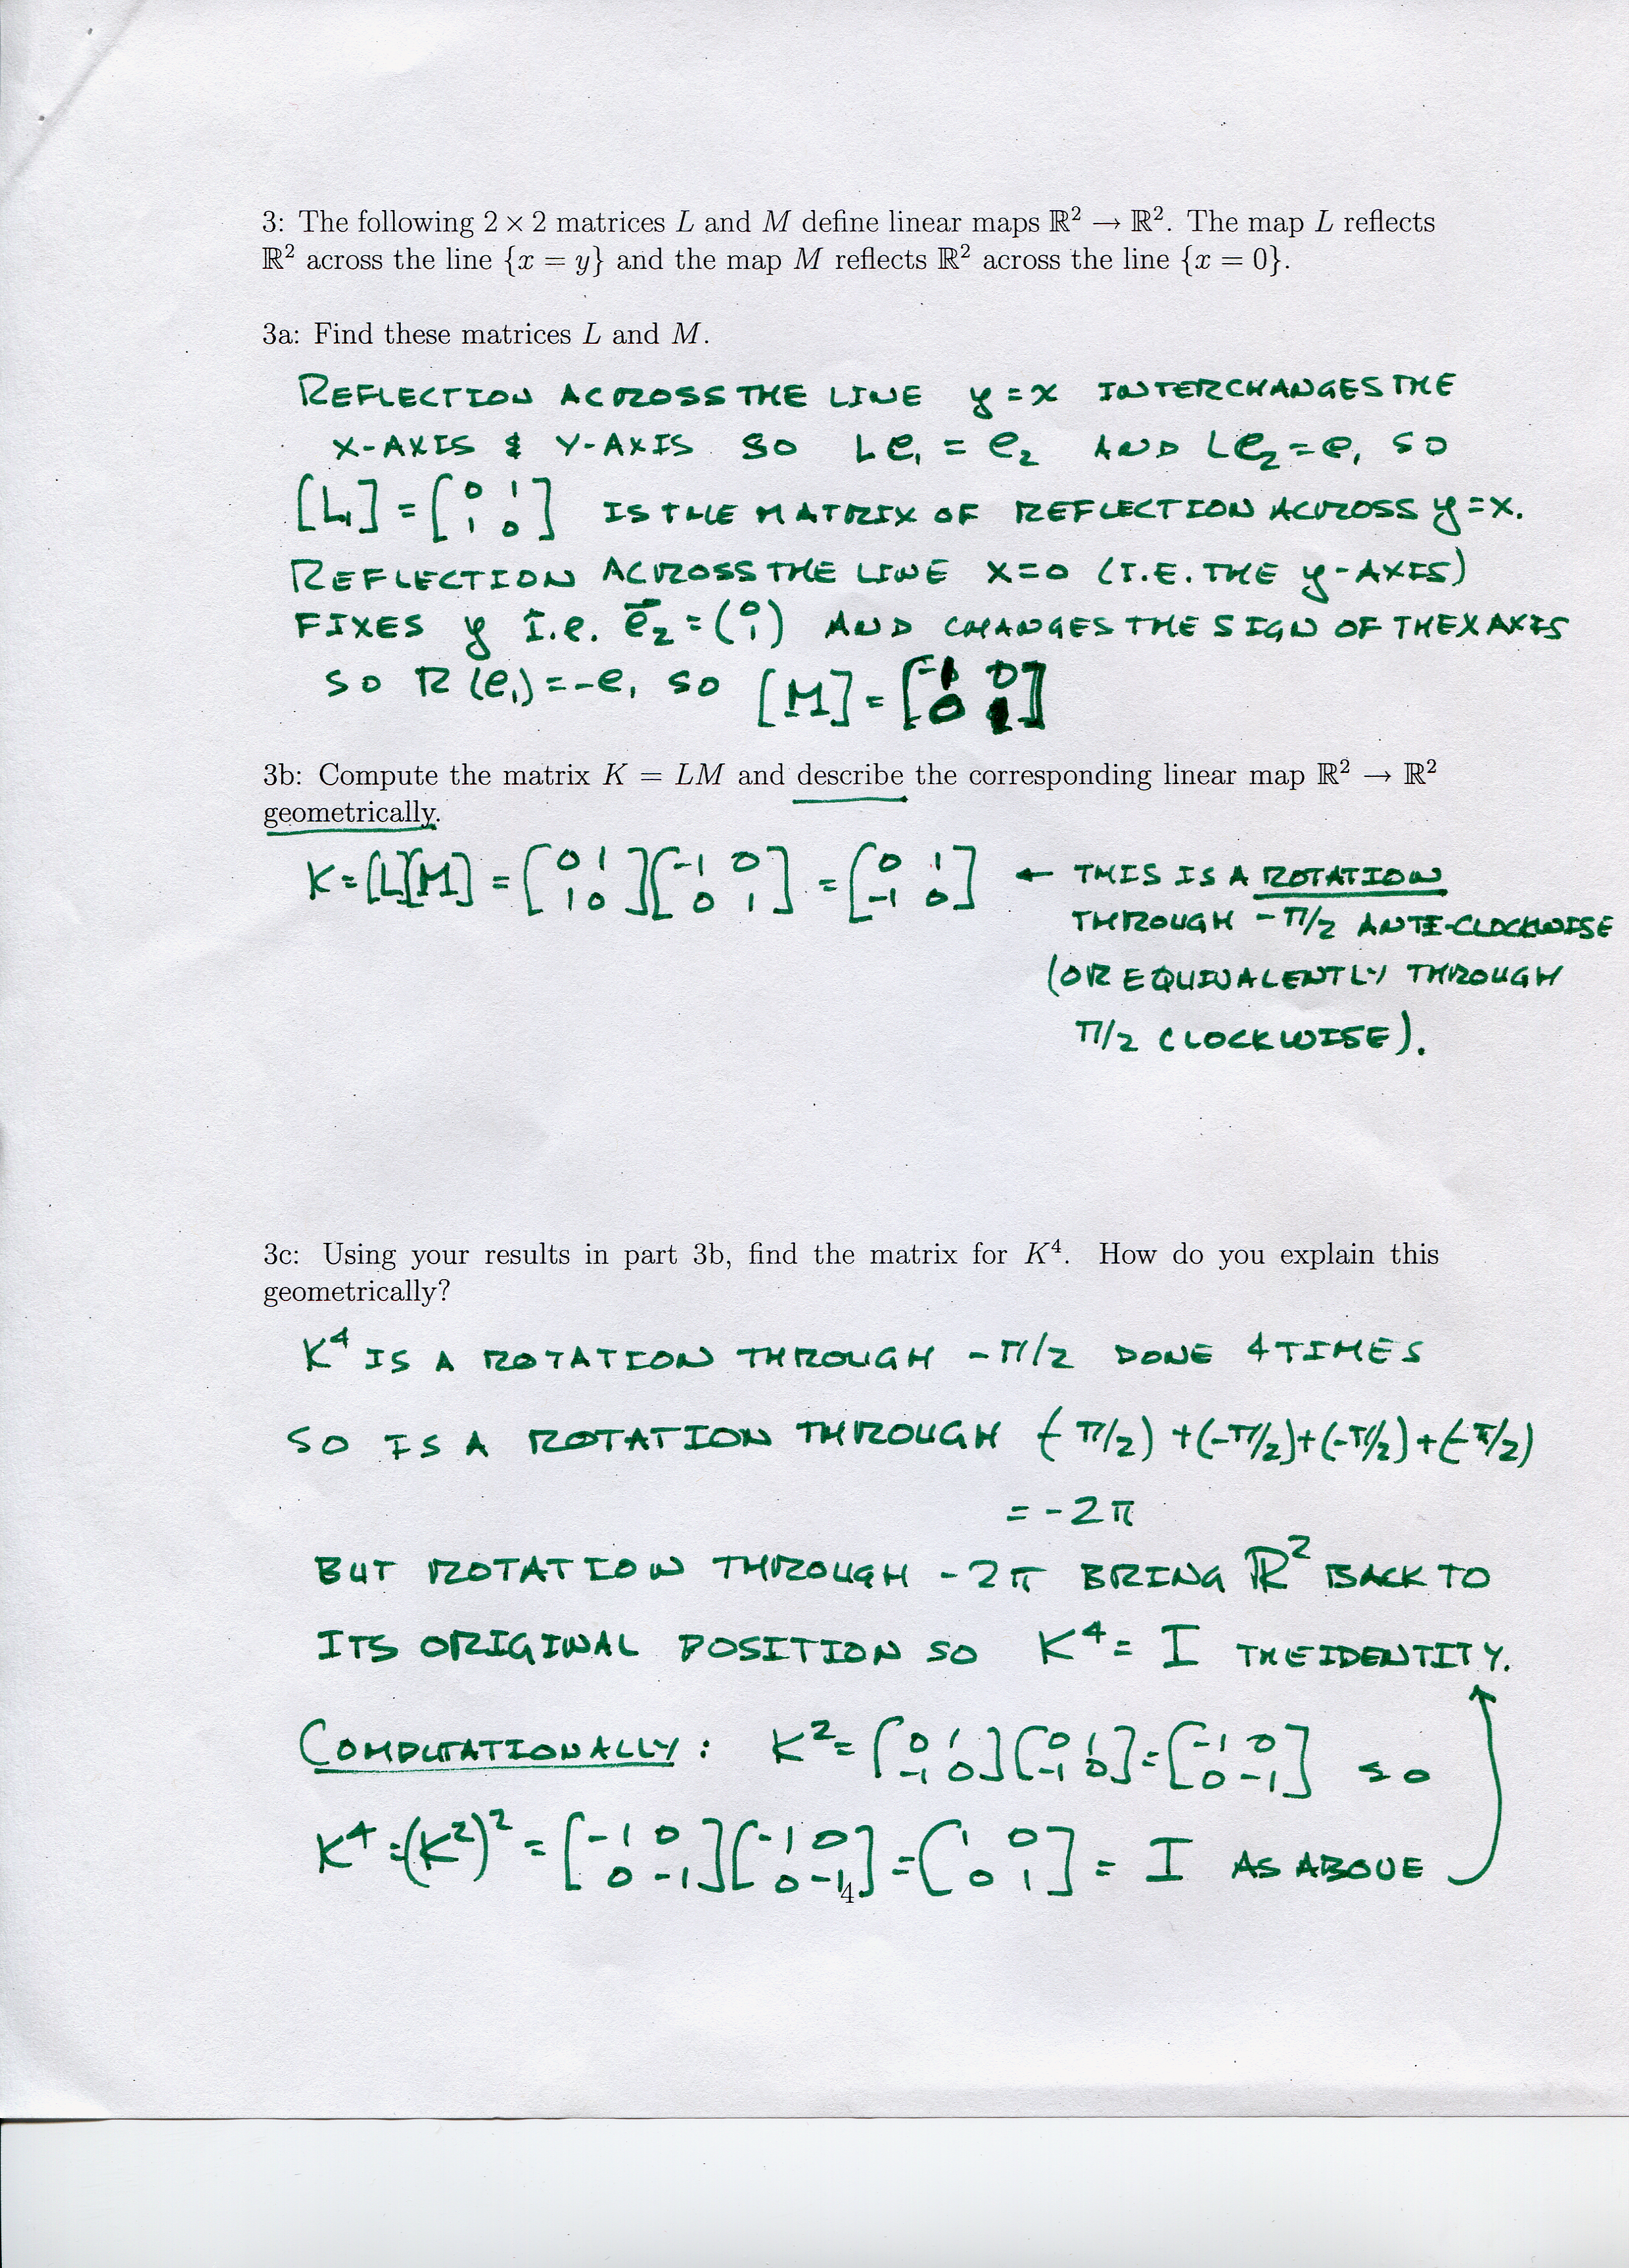 3: The following 2 × 2 matrices L and M define linear maps ℝ² → ℝ². The map L reflects
ℝ² across the line {x = y} and the map M reflects ℝ² across the line {x = 0}.
3a: Find these matrices L and M.
REFLECTION ACROSS THE LINE y = x INTERCHANGES THE
X-AXIS & Y-AXIS SO Le₁ = e₂ AND Le₂ = e₁ SO
[L] = [0 1; 1 0] IS THE MATRIX OF REFLECTION ACROSS y = x.
REFLECTION ACROSS THE LINE X=0 (I.E. THE y-AXIS)
FIXES y I.e. e⃗₂ = (0; 1) AND CHANGES THE SIGN OF THE X AXIS
SO R(e₁) = -e₁ SO [M] = [-1 0; 0 1]
3b: Compute the matrix K = LM and describe the corresponding linear map ℝ² → ℝ²
geometrically.
K = [L][M] = [0 1; 1 0][-1 0; 0 1] = [0 1; -1 0] ← THIS IS A ROTATION
THROUGH -π/2 ANTI-CLOCKWISE
(OR EQUIVALENTLY THROUGH
π/2 CLOCKWISE).
3c: Using your results in part 3b, find the matrix for K⁴. How do you explain this
geometrically?
K⁴ IS A ROTATION THROUGH -π/2 DONE 4 TIMES
SO IS A ROTATION THROUGH (-π/2) + (-π/2) + (-π/2) + (-π/2)
= -2π
BUT ROTATION THROUGH -2π BRING ℝ² BACK TO
ITS ORIGINAL POSITION SO K⁴ = I THE IDENTITY.
COMPUTATIONALLY: K² = [0 1; -1 0][0 1; -1 0] = [-1 0; 0 -1] SO
K⁴ = (K²)² = [-1 0; 0 -1][-1 0; 0 -1] = [1 0; 0 1] = I AS ABOVE
4